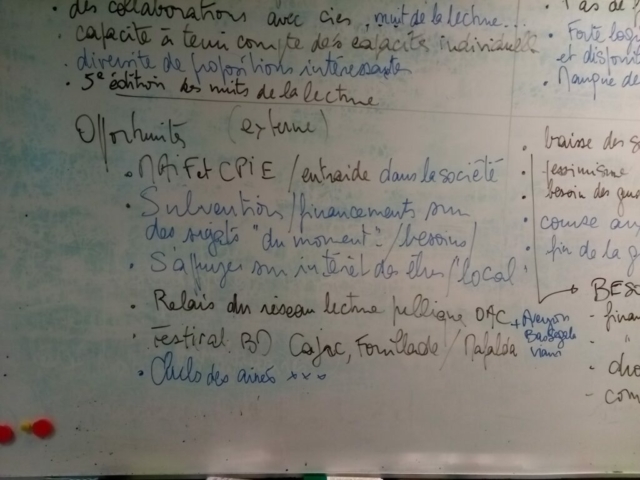 des collaborations avec cies, nuit de la lecture...
• capacité à tenir compte des capacités individuelles
• diversité de propositions intéressantes
• 5e édition des nuits de la lecture
Opportunités (externe)
• MAIF et CPIE / entraide dans la société
• Subvention / financements sur
des sujets "du moment" / besoins /
• S'appuyer sur intérêt des élus / local
• Relais du réseau lecture publique
+ Aveyron
• Festival BD Cajarc, / Mafalda
• Clubs des ainés xxx
• 1 as de
• Forte
et
• Manque de
• baisse des
pessimisme
• besoin des
course
fin de la
→ BESO
- finan
- com